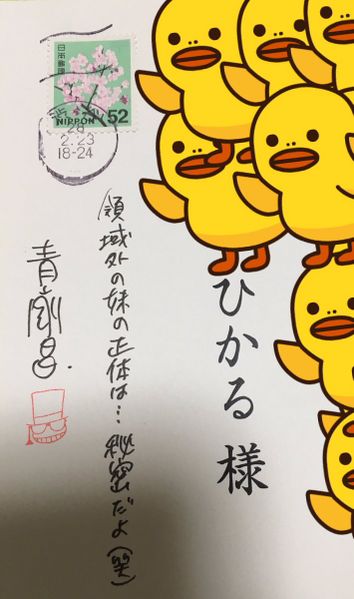 日本郵便
52
NIPPON
28
2.23
18-24
ひかる 様
領域外の妹の正体は… 秘密だよ(笑)
青山剛昌.